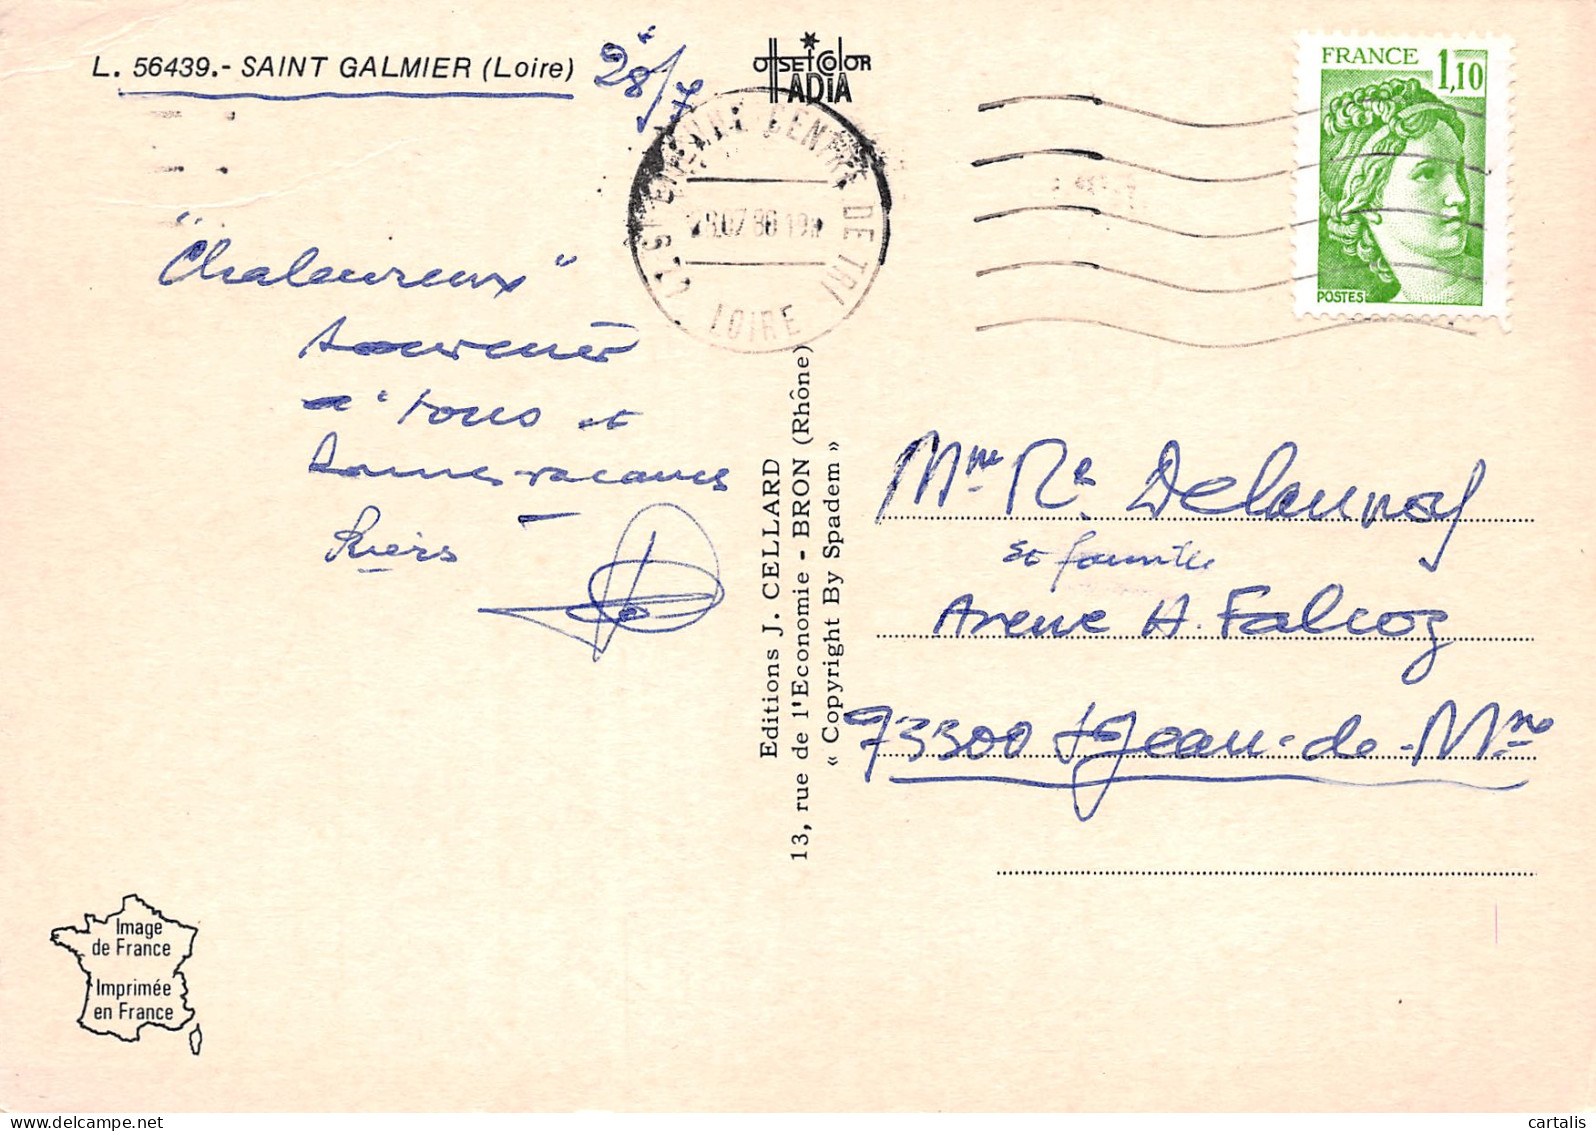 L. 56439.- SAINT GALMIER (Loire)
28/7
OFFSET COLOR
IADIA
ST-ETIENNE CENTRE DE TRI
.07 80 19H
LOIRE
FRANCE 1,10
POSTES
"Chaleureux"
souvenir
à tous et
bonnes vacances
Mme R. Delaunay
et famille
Avenue H. Falcoz
73300 St Jean-de-Mne
Editions J. CELLARD
13, rue de l'Economie - BRON (Rhône)
« Copyright By Spadem »
Image
de France
Imprimée
en France
Image credit cartalis
www.delcampe.net
cartalis